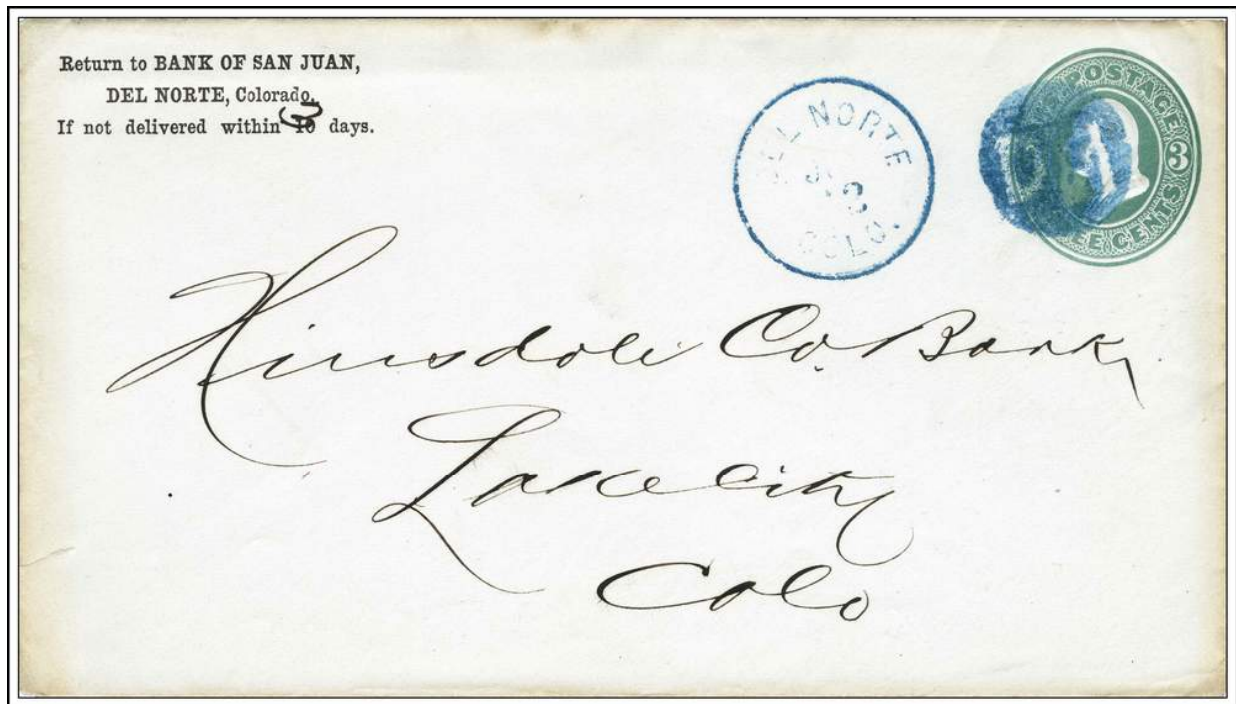 Return to BANK OF SAN JUAN,
DEL NORTE, Colorado,
If not delivered within 3 days.
DEL NORTE
COLO.
POSTAGE
3
CENTS
Hinsdale Co. Bank,
Lake City
Colo